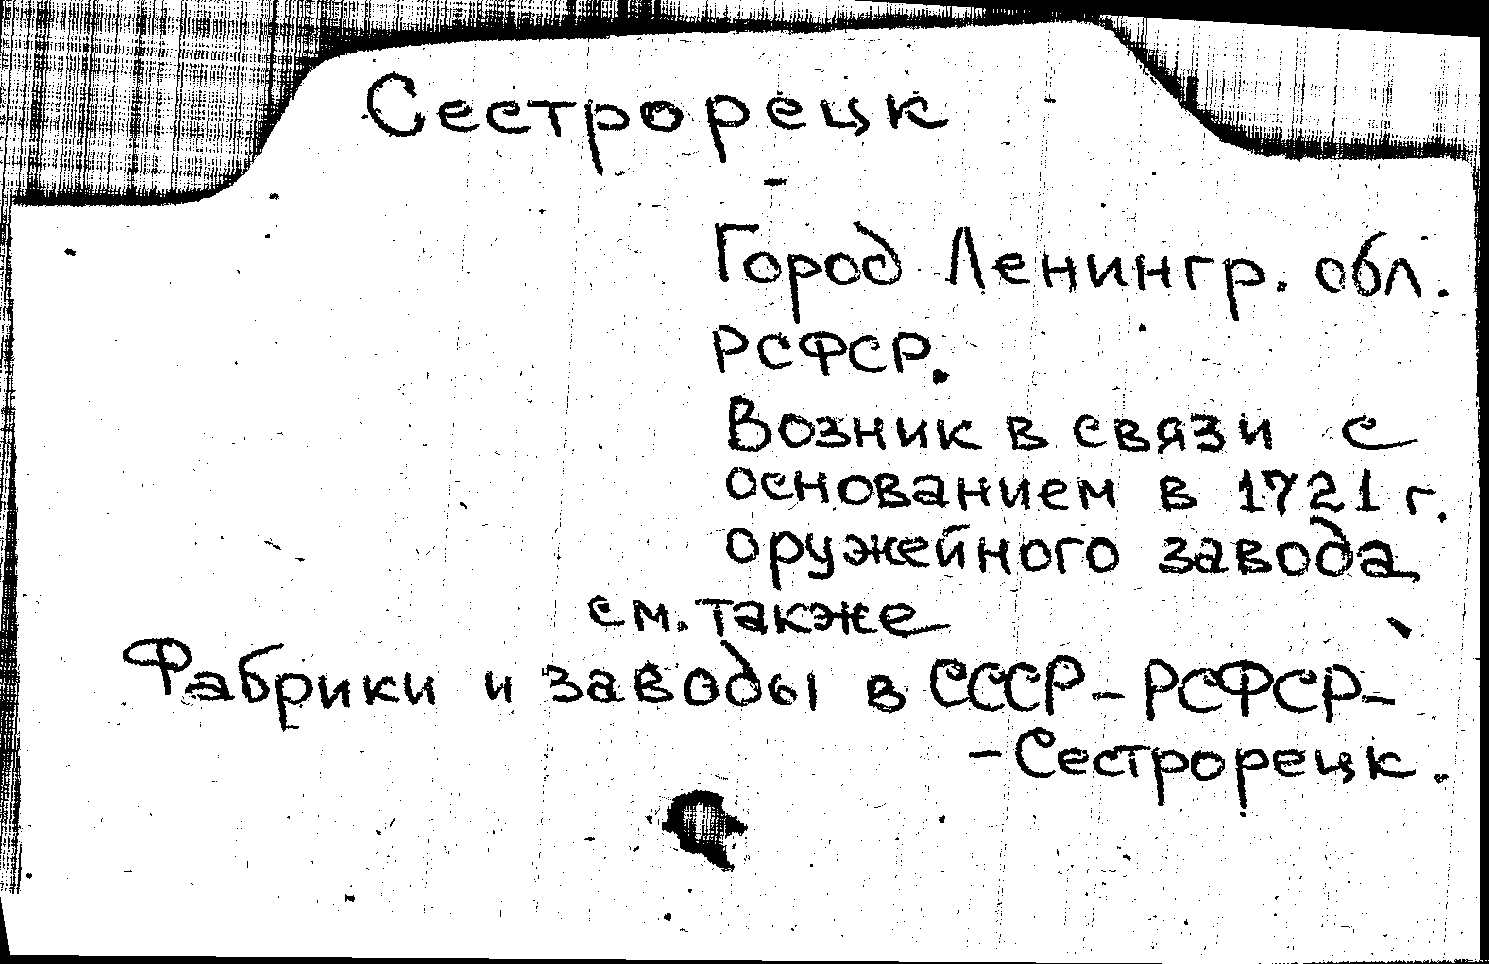 Сестрорецк
Город Ленингр. обл.
РСФСР.
Возник в связи с
основанием в 1721 г.
оружейного завода
см. также
Фабрики и заводы в СССР – РСФСР –
– Сестрорецк.